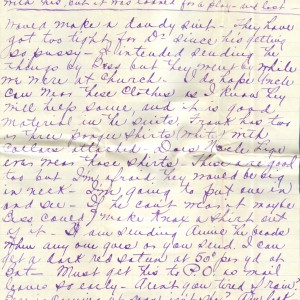 would make a dandy suit - They have
got too tight for Dr since his getting
so pussy - I intended sending the
things by Bess but they went by while
we were at Church - I do hope Uncle
can wear these clothes as I know they
will help some, and it is good
material in the suits. Frank his too
is three pongee shirts white with
collars attached - Does Uncle
ever wear those shirts - These are good
too but I'm afraid they would be big
in neck - I'm going to put one in
and see - If he can't wear it maybe
Bess could make Knox a shirt out
of it - I am sending Annie the goods
when any one goes or you send. I can
get a dark red satin at 50¢ per yd at
- Must get this to P.O. as mail
leaves so early - Aren't you tired of rain